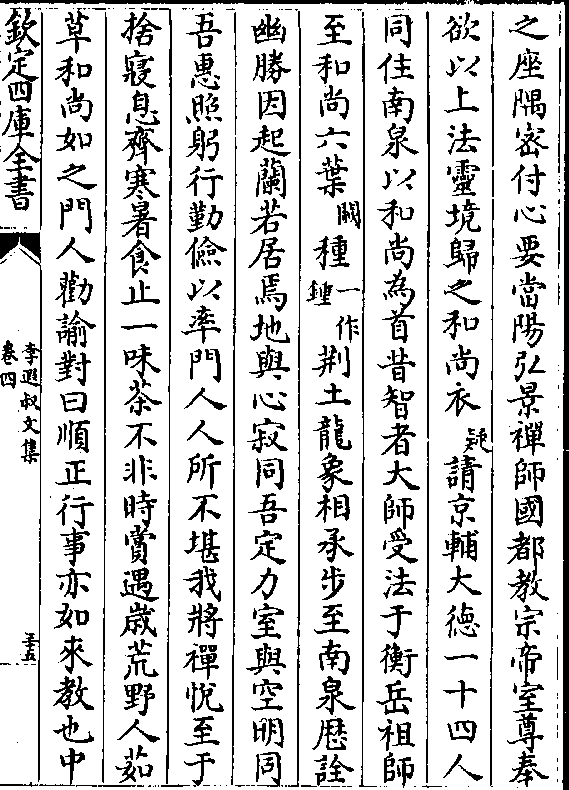 之座隅密付心要當陽弘景禪師國都教宗帝室尊奉
欲以上法靈境歸之和尚衣疑請京輔大德一十四人
同住南泉以和尚為首昔智者大師受法于衡岳祖師
至和尚六葉闕種一作鍾荆土龍象相承步至南泉歴詮
幽勝因起蘭若居焉地與心寂同吾定力室與空明同
吾惠照躬行勤儉以率門人人所不堪我將禪悅至于
捨寢息齊寒暑食止一味茶不非時賞遇嵗荒野人茹
草和尚如之門人勸諭對曰順正行事亦如來教也中
欽定四庫全書
李遐叔文集
卷四
三十五